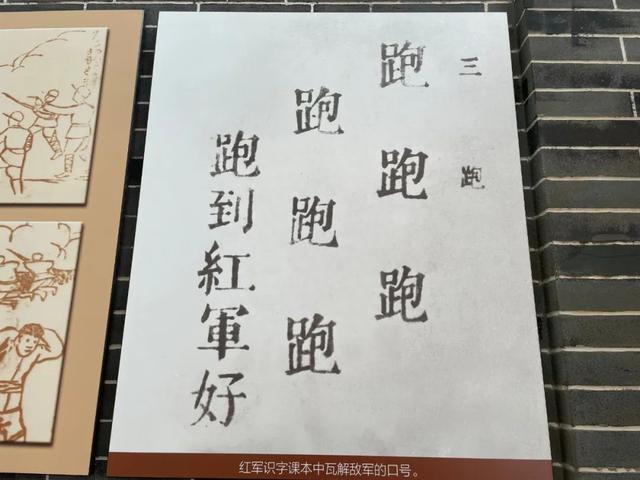 三 跑
跑跑跑
跑跑跑
跑到紅軍好
红军识字课本中瓦解敌军的口号。